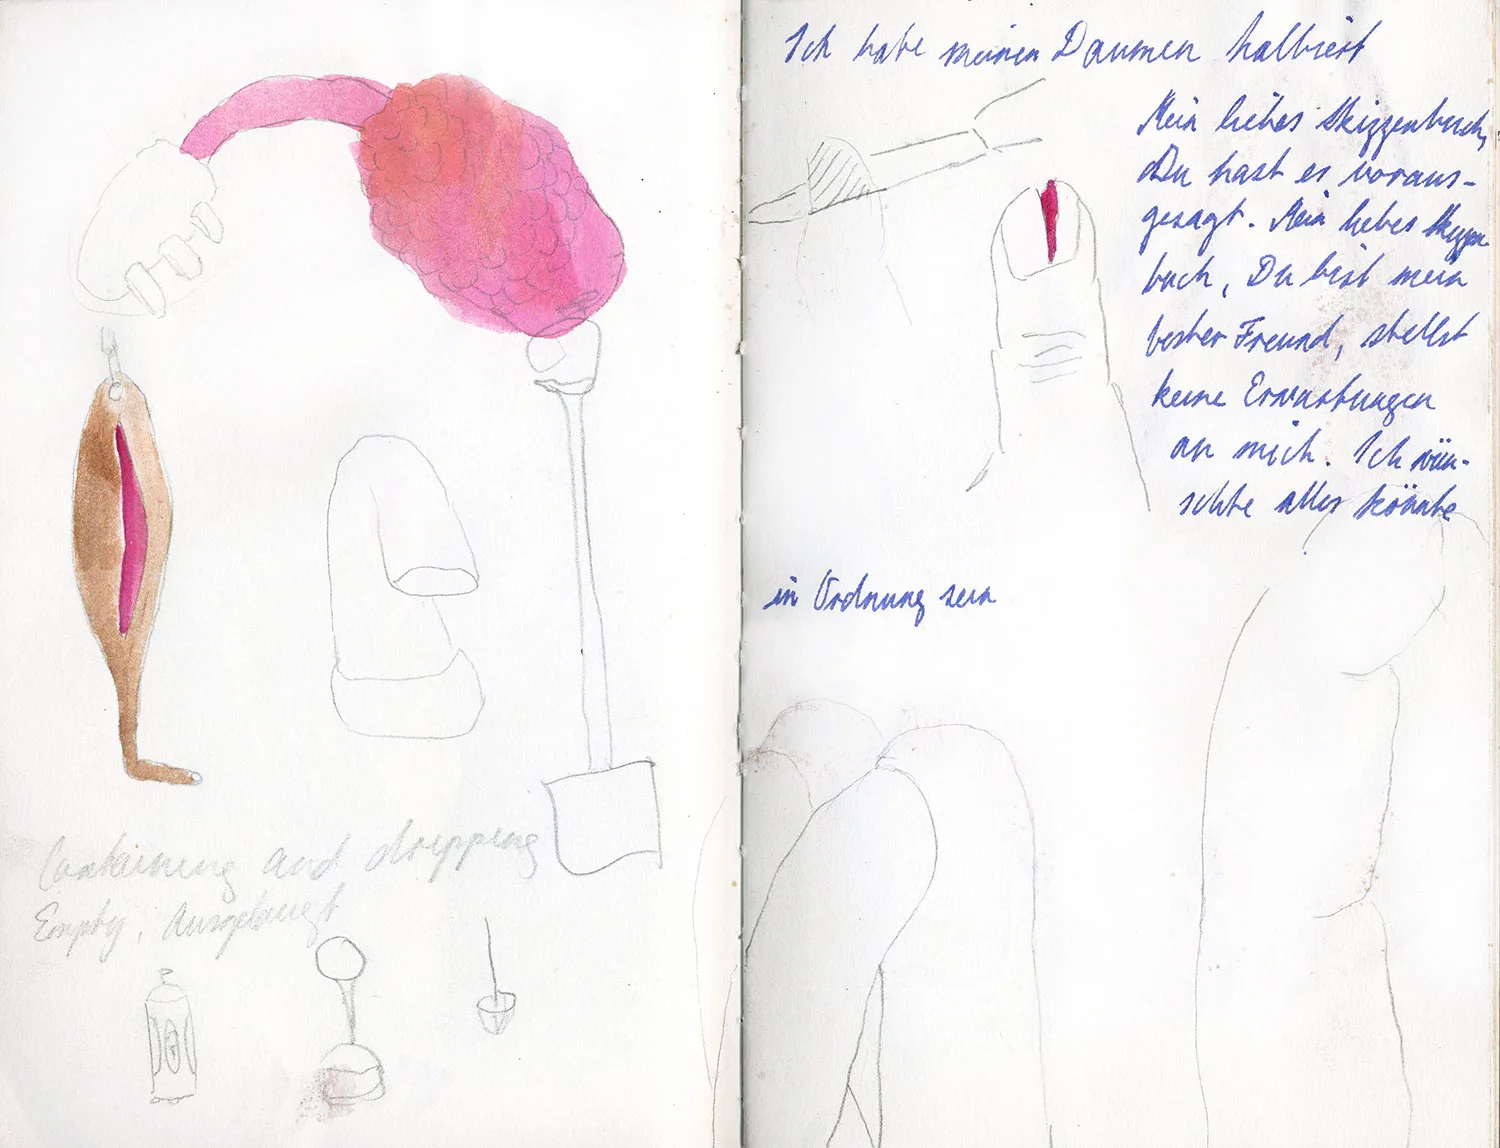 Containing and dripping
Empty, Ausgelaugt
Ich habe meinen Daumen halbiert
Mein liebes Skizzenbuch,
Du hast es voraus-
gesagt. Mein liebes Skizzen
buch, Du bist mein
bester Freund, stellst
keine Erwartungen
an mich. Ich wün-
schte alles könnte
in Ordnung sein